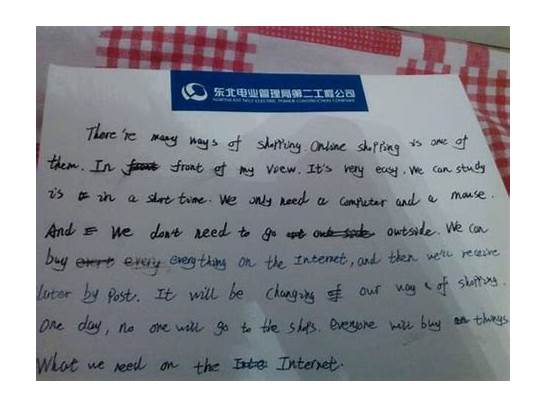 东北电业管理局第二工程公司
NORTHEAST NO.2 ELECTRIC POWER CONSTRUCTION COMPANY
There're many ways of shopping. Online shopping is one of
them. In front of my view. It's very easy. We can study
is in a short time. We only need a computer and a mouse.
And We don't need to go outside. We can
buy everything on the Internet, and then we'll receive
later by Post. It will be changing our way of shopping.
One day, no one will go to the shops. Everyone will buy things
What we need on the Internet.